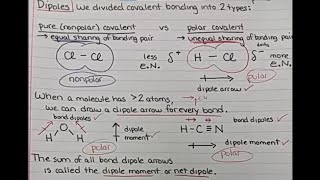 Dipoles we divided covalent bonding into 2 types:
pure (nonpolar) covalent vs polar covalent
→ equal sharing of bonding pair → unequal sharing of bonding pair
Cl – Cl less E.N. δ+ H – Cl δ- more E.N.
nonpolar polar
dipole arrow ✓
When a molecule has >2 atoms,
we can draw a dipole arrow for every bond.
bond dipoles bond dipoles ✓
H O H dipole moment ✓ H–C≡N
polar dipole moment ✓
polar
The sum of all bond dipole arrows
is called the dipole moment or net dipole.